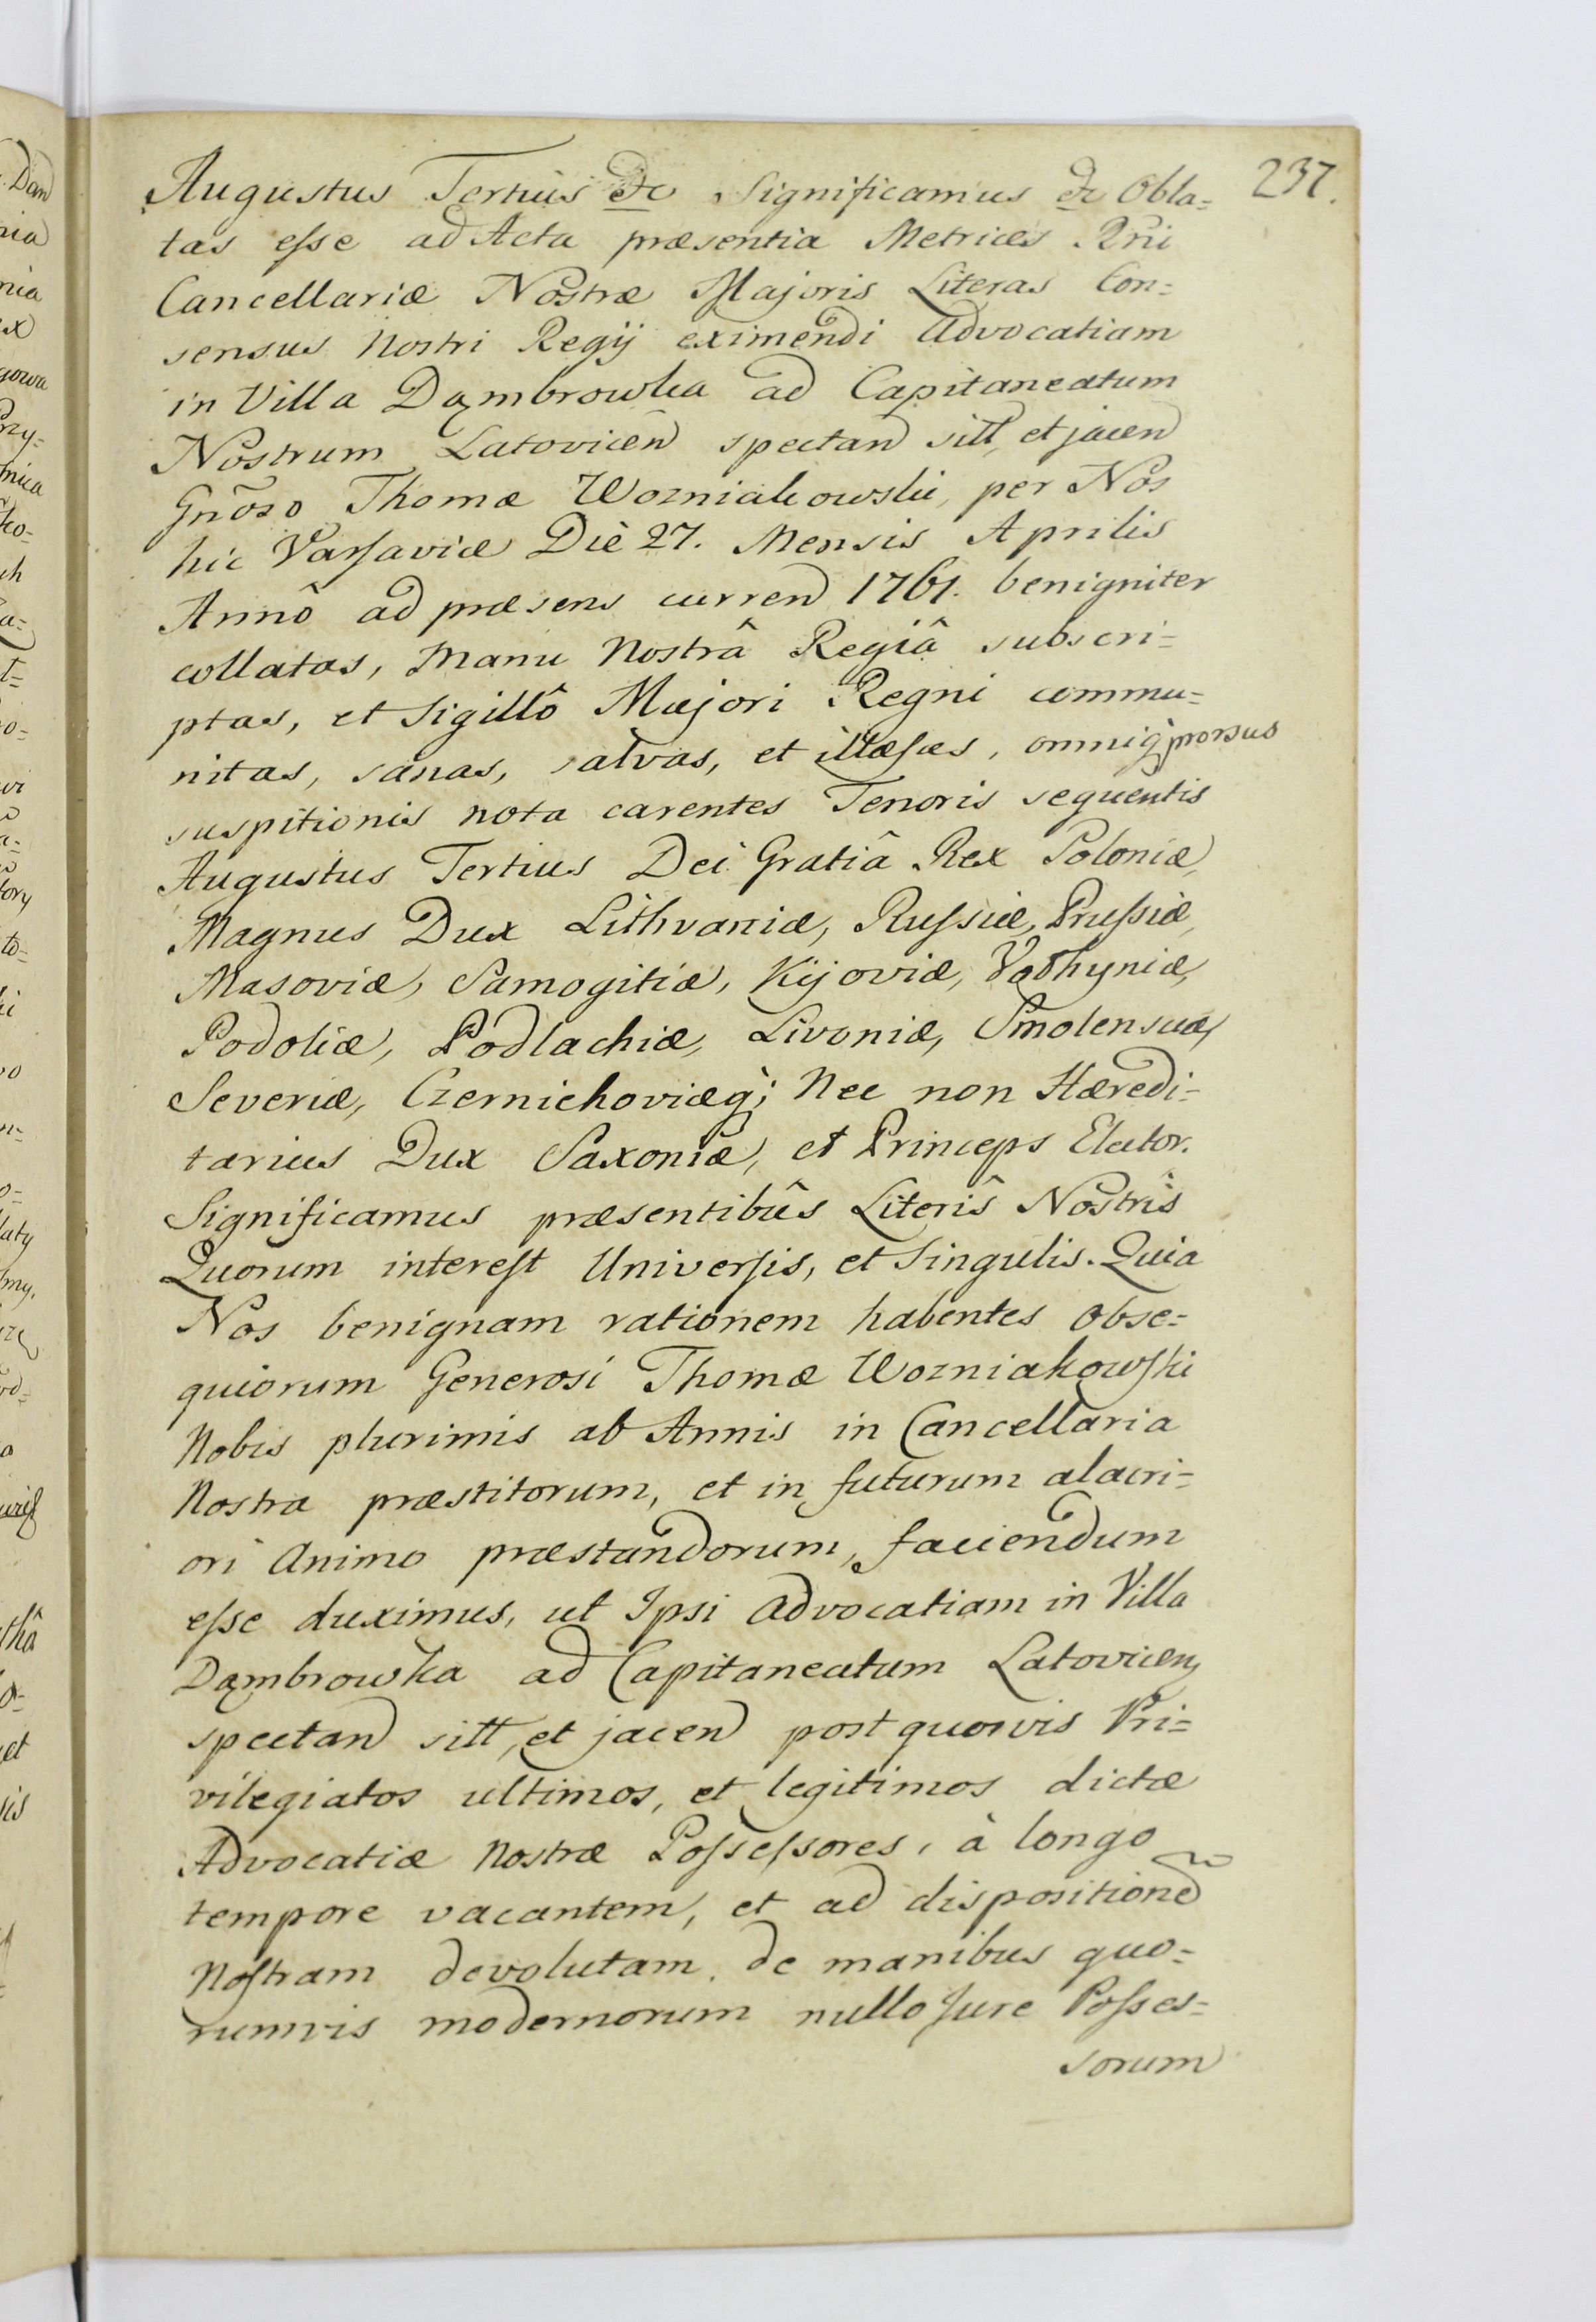 237.
Augustus Tertius &c Significamus &c Obla=
tas eſse ad Acta præsentia Metrices Rñi
Cancellariæ Nostræ Majoris Literas Con=
sensus Nostri Regij eximendi Advocatiam
in Villa Dąmbrowka ad Capitaneatum
Nostrum Latovicen̄ spectan̄ sitt, et jacen̄
Gnõso Thomæ Wozniakowski, per Nos
hic Varſaviæ Diè 27. Mensis Aprilis
Annô ad præsens curren̄ 1761. benigniter
collatas, Manu Nostrâ Regiâ subscri=
ptas, et Sigillô Majori Regni commu=
nitas, sanas, salvas, et illæſas, omniq̀ prorsus
suspitionis nota carentes Tenoris sequentis
Augustus Tertius Dei Gratiâ Rex Poloniæ,
Magnus Dux Lithvaniæ, Ruſsiæ, Pruſsiæ,
Masoviæ, Samogitiæ, Kijoviæ, Volhyniæ,
Podoliæ, Podlachiæ, Livoniæ, Smolensciæ,
Severiæ, Czernichoviæq̀; Nec non Hæredi=
tarius Dux Saxoniæ, et Princeps Elector.
Significamus præsentibûs Literîs Nostrîs
Quorum intereſt Univerſis, et Singulis. Quia
Nos benignam rationem habentes Obse=
quiorum Generosi Thomæ Wozniakowſki
Nobis plurimis ab Annis in Cancellaria
Nostra præstitorum, et in futurum alacri=
ori Animo præstandorum, faciendum
eſse duximus, ut Ipsi Advocatiam in Villa
Dąmbrowka ad Capitaneatum Latovicen,
spectan̄ sitt, et jacen̄ post quosvis Pri=
vilegiatos ultimos, et legitimos dictæ
Advocatiæ Nostræ Poſseſsores, à longo
tempore vacantem, et ad dispositionẽ
Noſtram devolutam, de manibus quo=
rumvis modernorum nullo Jure Poſses=
sorum